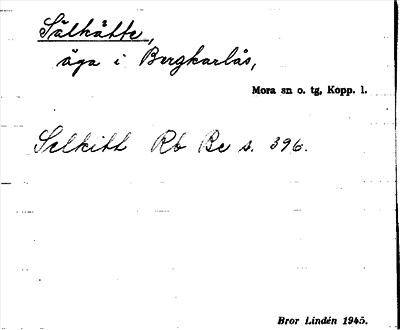 Sälkätte,
äga i Bergkarlås,
Mora sn o. tg, Kopp. l.
Selkitt Rb Bc s. 396.
Bror Lindén 1945.